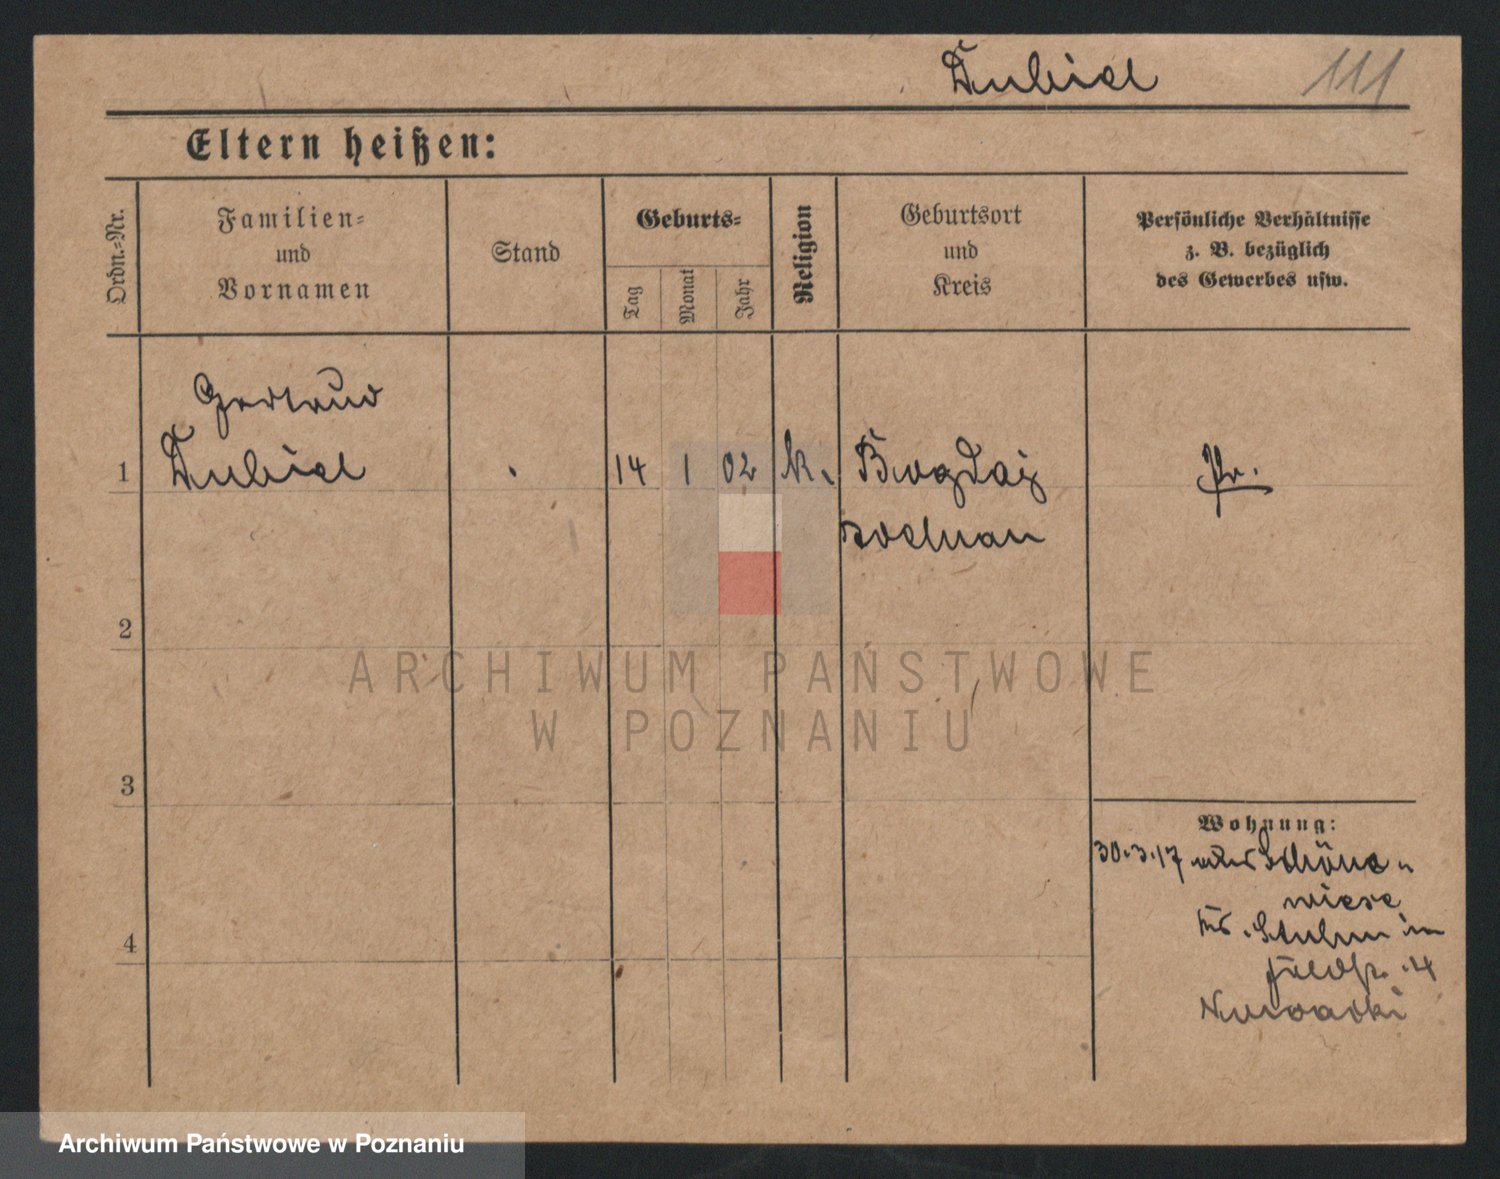 Dubiel 111
Eltern heißen:
Ordn.=Nr.
Familien=
und
Vornamen
Stand
Geburts=
Tag
Monat
Jahr
Religion
Geburtsort
und
Kreis
Persönliche Verhältnisse
z. B. bezüglich
des Gewerbes usw.
Gertrud
1 Dubiel 14 1 02 k. Bogdaj Pr.
Adelnau
2
3
4
Wohnung:
30.3.17 Schöne-
wiese
Kr. Stuhm
Nowacki
ARCHIWUM PAŃSTWOWE
W POZNANIU
Archiwum Państwowe w Poznaniu